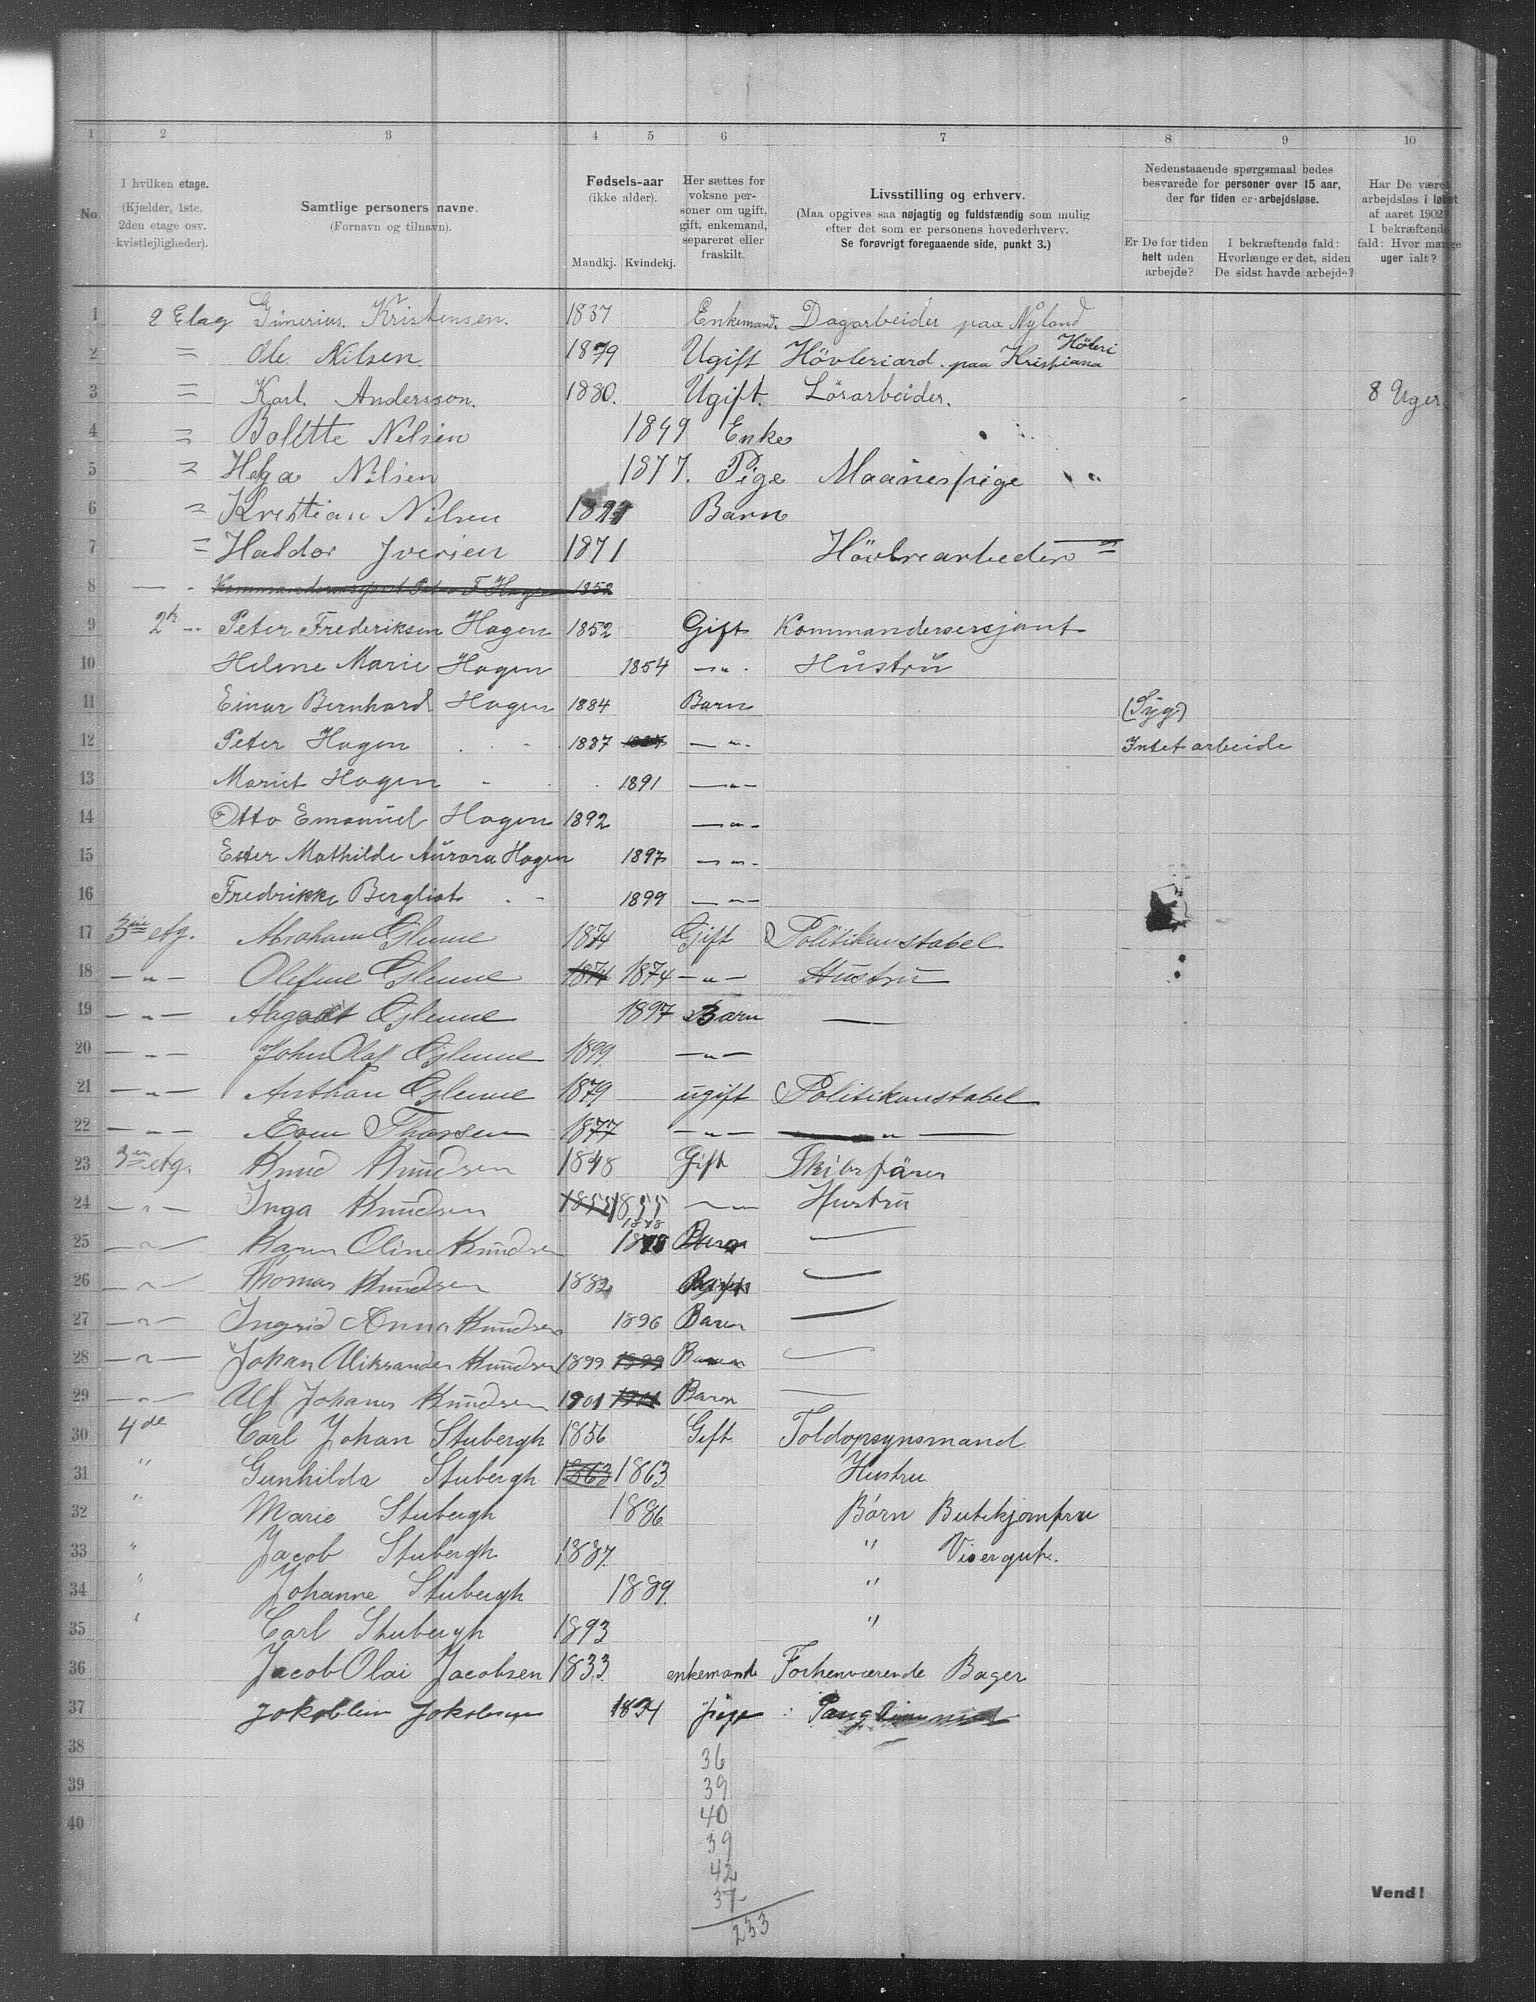 1 2 3 4 5 6 7 8 9 10
No.
I hvilken etage.
(Kjælder, 1ste, 2den etage osv. kvistlejligheder).
Samtlige personers navne.
(Fornavn og tilnavn).
Fødsels-aar
(ikke alder).
Mandkj. Kvindekj.
Her sættes for voksne personer om ugift, gift, enkemand, separeret eller fraskilt.
Livsstilling og erhverv.
(Maa opgives saa nøjagtig og fuldstændig som mulig efter det som er personens hovederhverv.
Se forøvrigt foregaaende side, punkt 3.)
Nedenstaaende spørgsmaal bedes besvarede for personer over 15 aar, der for tiden er arbejdsløse.
Er De for tiden helt uden arbejde?
I bekræftende fald: Hvorlænge er det, siden De sidst havde arbejde?
Har De været arbejdsløs i løbet af aaret 1902? I bekræftende fald: Hvor mange uger ialt?
1 2 Etag Gimerius. Kristensen. 1837 Enkemand. Dagarbeider paa Nyland
2 = Ole Nilsen. 1879 Ugift Hövleriard. paa Kristiana Höleri
3 = Karl. Andersson. 1880. Ugift. Lörarbeider. 8 Uger.
4 = Bolette Nilsen 1849 Enke
5 = Helga Nilsen 1877. Pige Maanespige
6 = Kristian Nilsen Barn
7 = Haldor Iversen 1871 Hövlrearbeder
8 — Kommandersersjant Peter F Hagen 1852
9 2den - Peter Frederiksen Hagen 1852 Gift Kommandersersjant
10 Helene Marie Hagen 1854 —„— Hustru
11 Einar Bernhard Hagen 1884 Barn (Syg)
12 Peter Hagen 1887 —„— Intet arbeide
13 Marie Hagen 1891 —„—
14 Otto Emanuel Hagen 1892 —„—
15 Ester Mathilde Aurora Hagen 1897 —„—
16 Fredrikke Bergliot - - 1899 —„—
17 3die etg. Abraham Glenne 1874 Gift Politikonstabel
18 —„— Olefine Glenne 1874 1874 —„— Hustru
19 —„— Aagoat Glenne 1897 Barn —
20 —„— John Olaf Glenne 1899 —„—
21 —„— Anthon Glenne 1879 ugift Politikonstabel
22 —„— Even Thorsen 1877 —„— —„—
23 3die etg. Knud Knudsen 1848 Gift Skibsförer
24 —„— Inga Knudsen 1855 1855 —„— Hustru
25 —„— Karen Oline Knudsen 1878 Baren —
26 —„— Thomas Knudsen 1882 —
27 —„— Ingrid Anna Knudsen 1896 Baren —
28 —„— Johan Aliksander Knudsen 1899 1899 Baren —
29 —„— Alf Johanes Knudsen 1901 1901 Baren —
30 4de Carl Johan Stubergh 1856 Gift Toldopsynsmand
31 „ Gunhilda Stubergh 1863 1863 Hustru
32 „ Marie Stubergh 1886 Börn Butikjomfru
33 „ Jacob Stubergh 1887. „ Visergut.
34 „ Johanne Stubergh 1889. „
35 „ Carl Stubergh 1893 „
36 Jacob Olai Jacobsen 1833. enkemand Forhenværende Bager
37 Jokoblin Jokobsen pige
38 36
39 39
40 40
39
42
37
233
Vend!